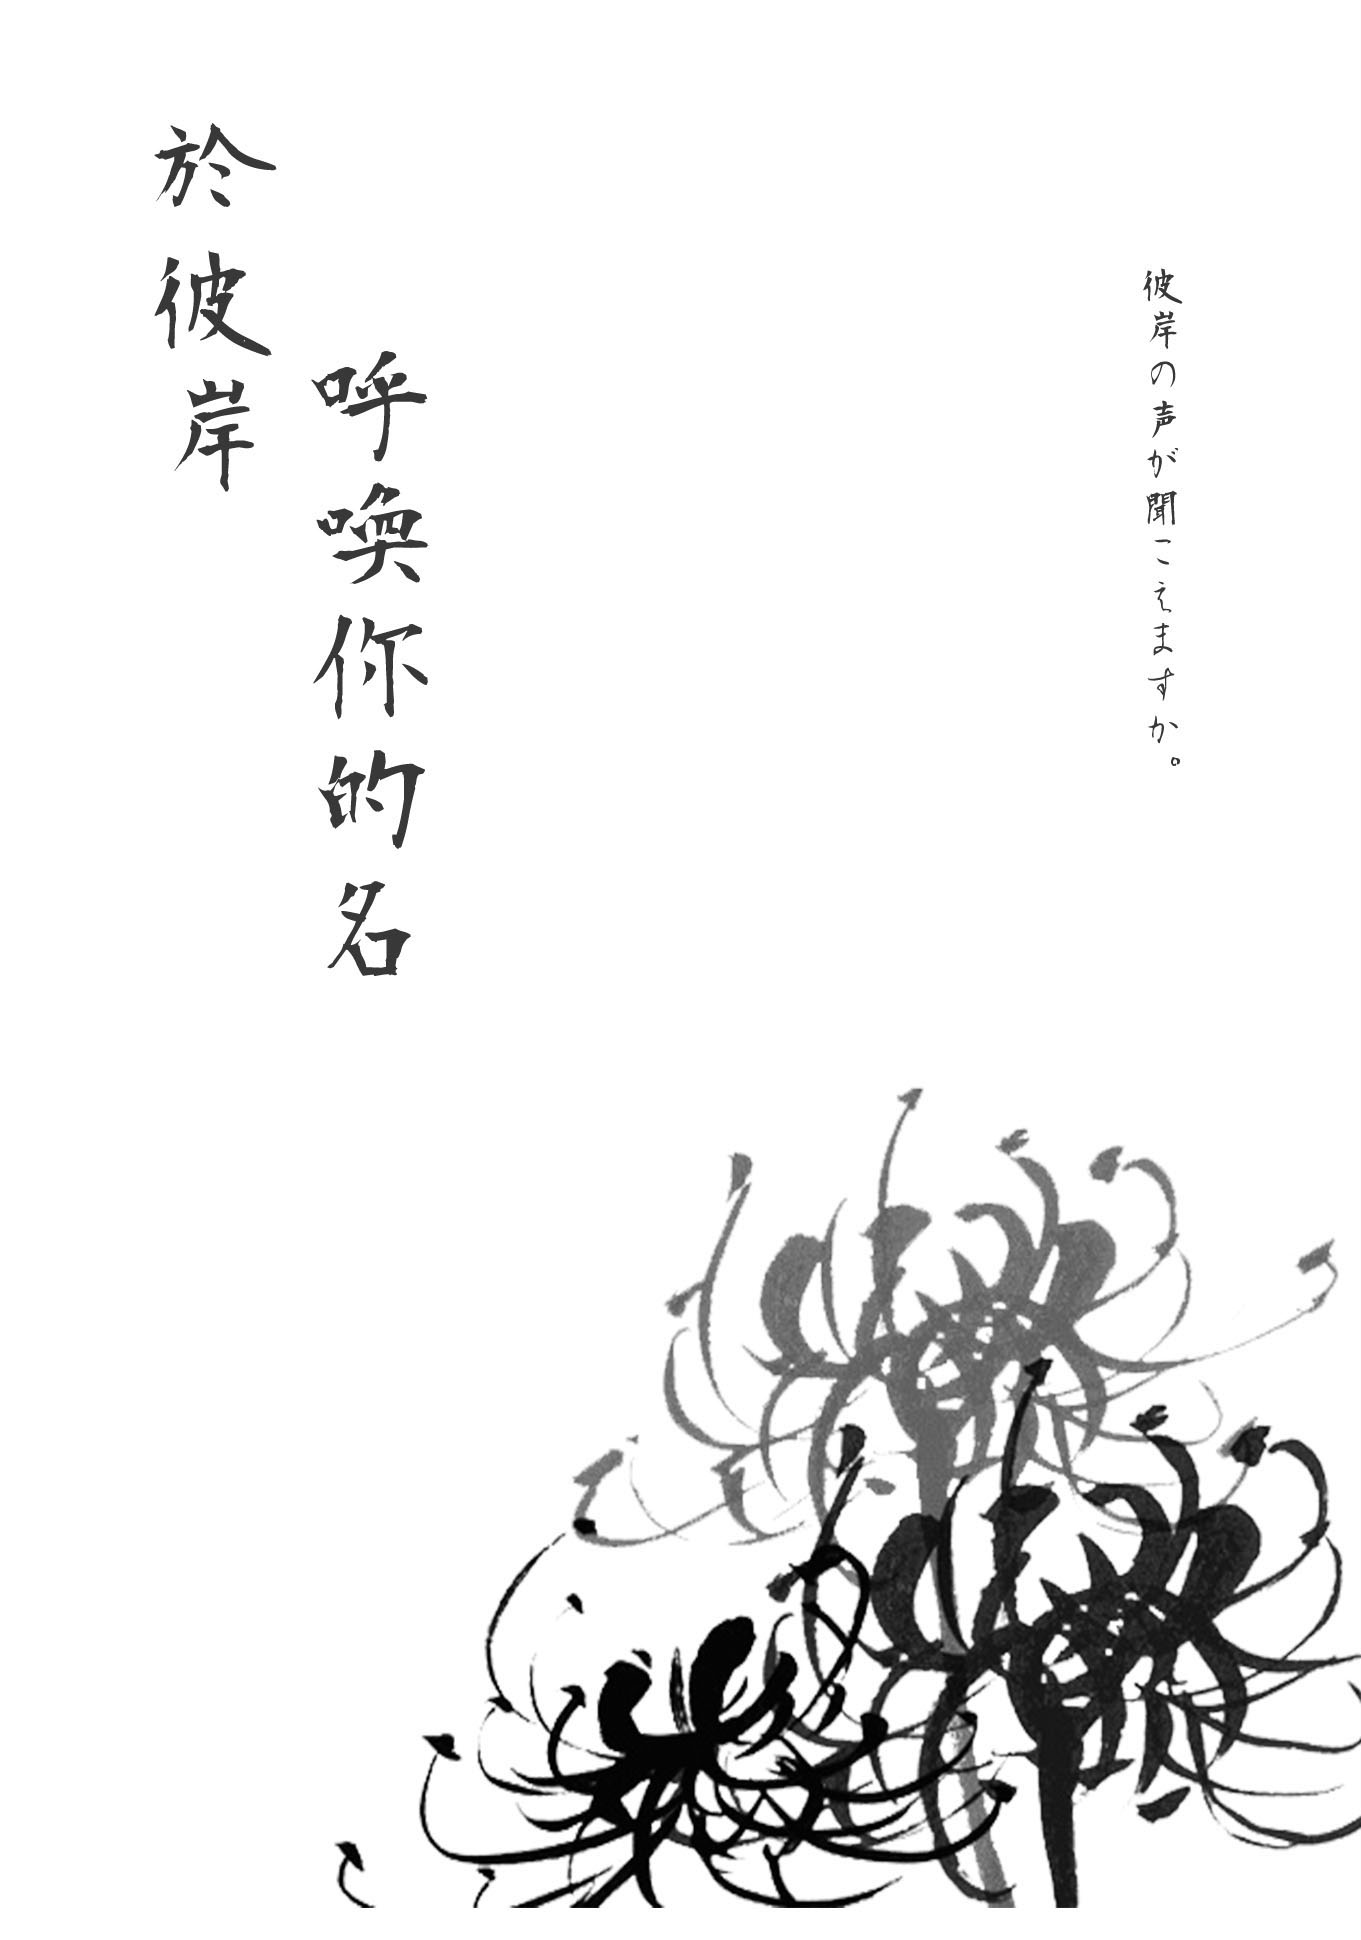 於彼岸
呼喚你的名
彼岸の声が聞こえますか。